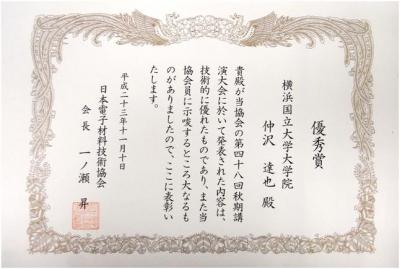 優秀賞
横浜国立大学大学院
仲沢 達也 殿
貴殿が当協会の第四十八回秋期講
演大会に於いて発表された内容は、
技術的に優れたものであり、また当
協会員に示唆するところ大なるも
のがありましたので、ここに表彰い
たします。
平成二十三年十一月十日
日本電子材料技術協会
会長 一ノ瀬 昇